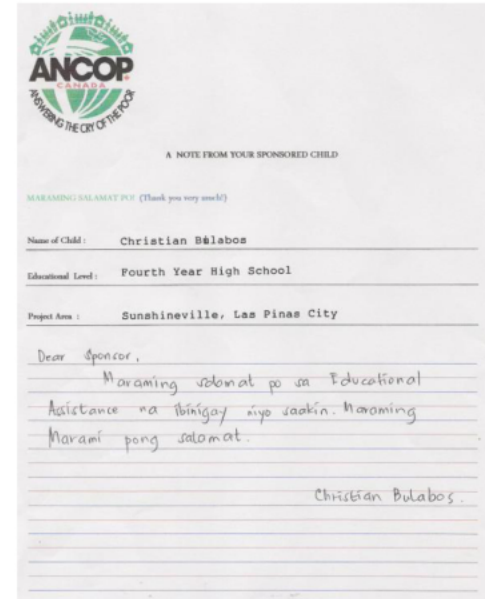 ANCOP
CANADA
ANSWERING THE CRY OF THE POOR
A NOTE FROM YOUR SPONSORED CHILD
MARAMING SALAMAT PO! (Thank you very much!)
Name of Child : Christian Bulabos
Educational Level : Fourth Year High School
Project Area : Sunshineville, Las Pinas City
Dear Sponsor,
Maraming salamat po sa Educational
Assistance na ibinigay niyo saakin. Maraming
Marami pong salamat.
Christian Bulabos.